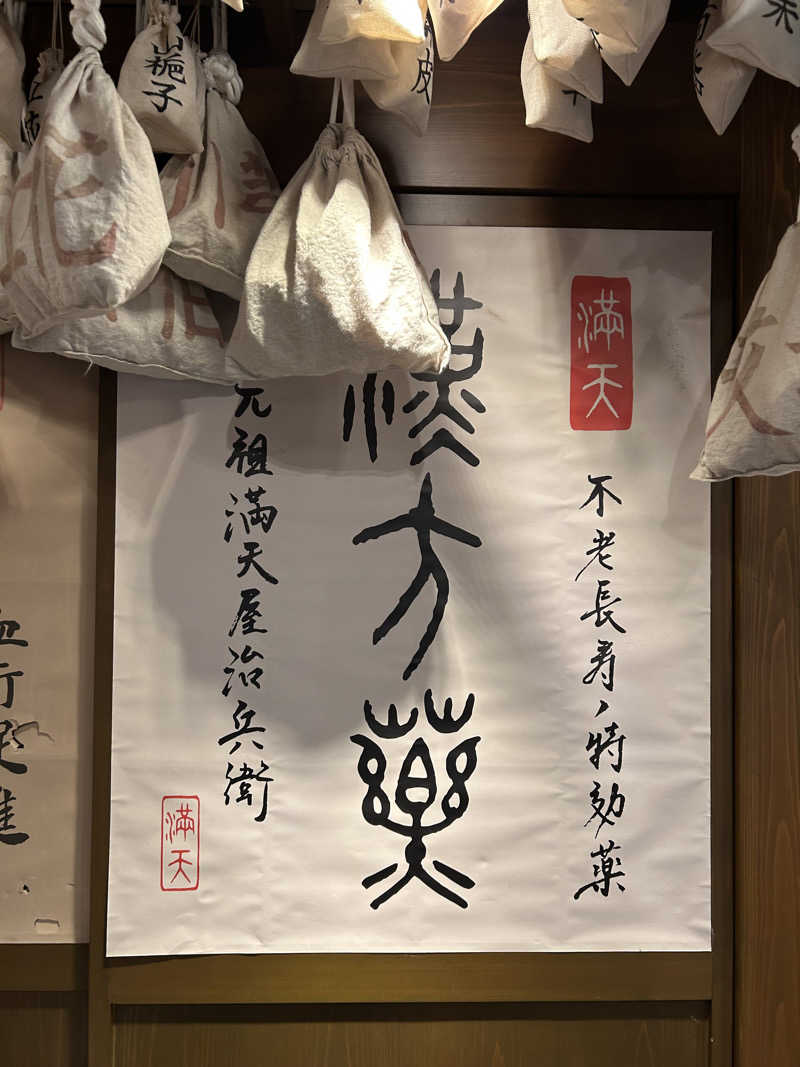 満天
不老長寿ノ特効薬
漢方薬
元祖満天屋治兵衛
満天
山梔子
皮
血行促進